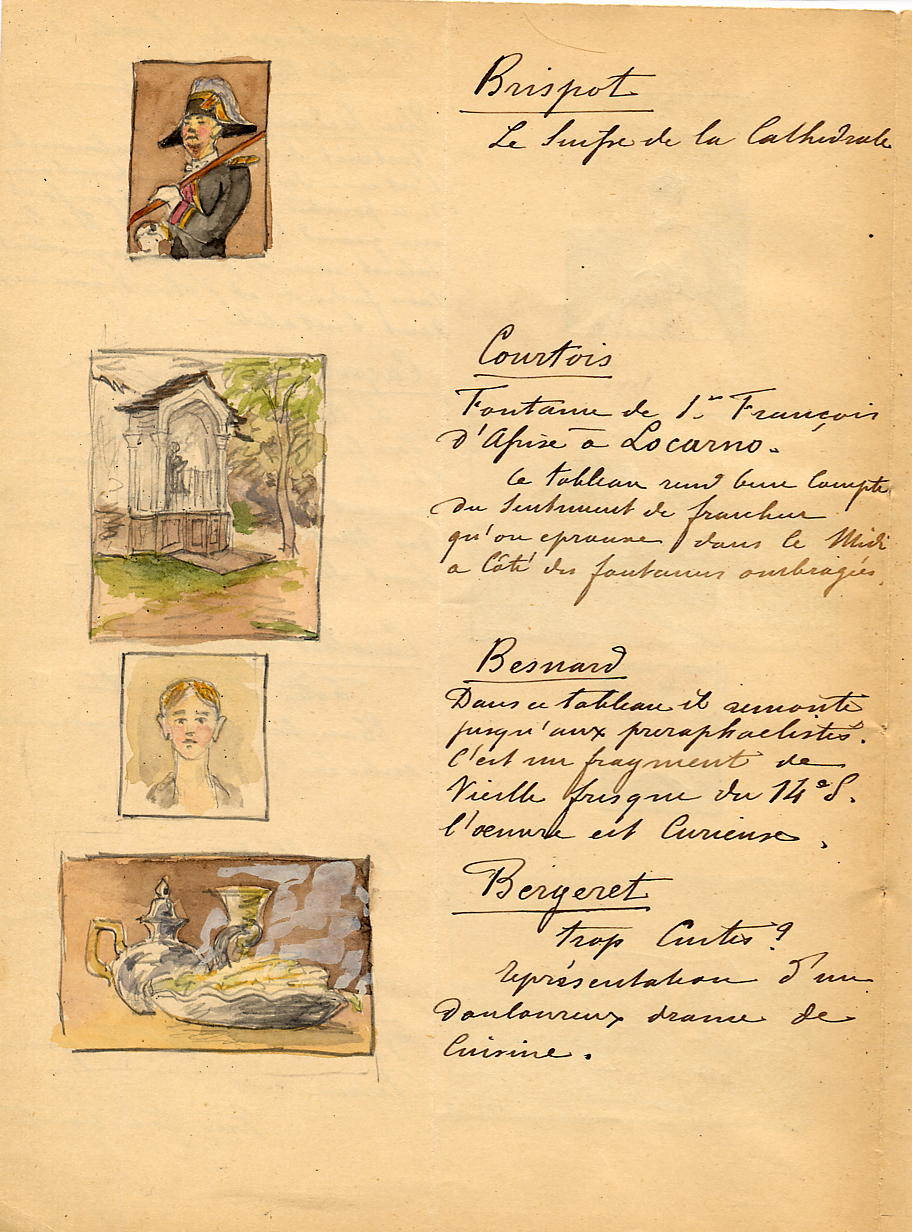 Brispot
Le Suisse de la Cathédrale
Courtois
Fontaine de St François
d'Assise à Locarno.
Ce tableau rend bien compte
du sentiment de fraicheur
qu'on eprouve dans le Midi
a côté des fontaines ombragées.
Besnard
Dans ce tableau il remonte
jusqu'aux preraphaelistes.
C'est un fragment de
Vieille fresque du 14e S.
l'œuvre est Curieuse.
Bergeret
trop Cuites ?
représentation d'un
douloureux drame de
Cuisine.